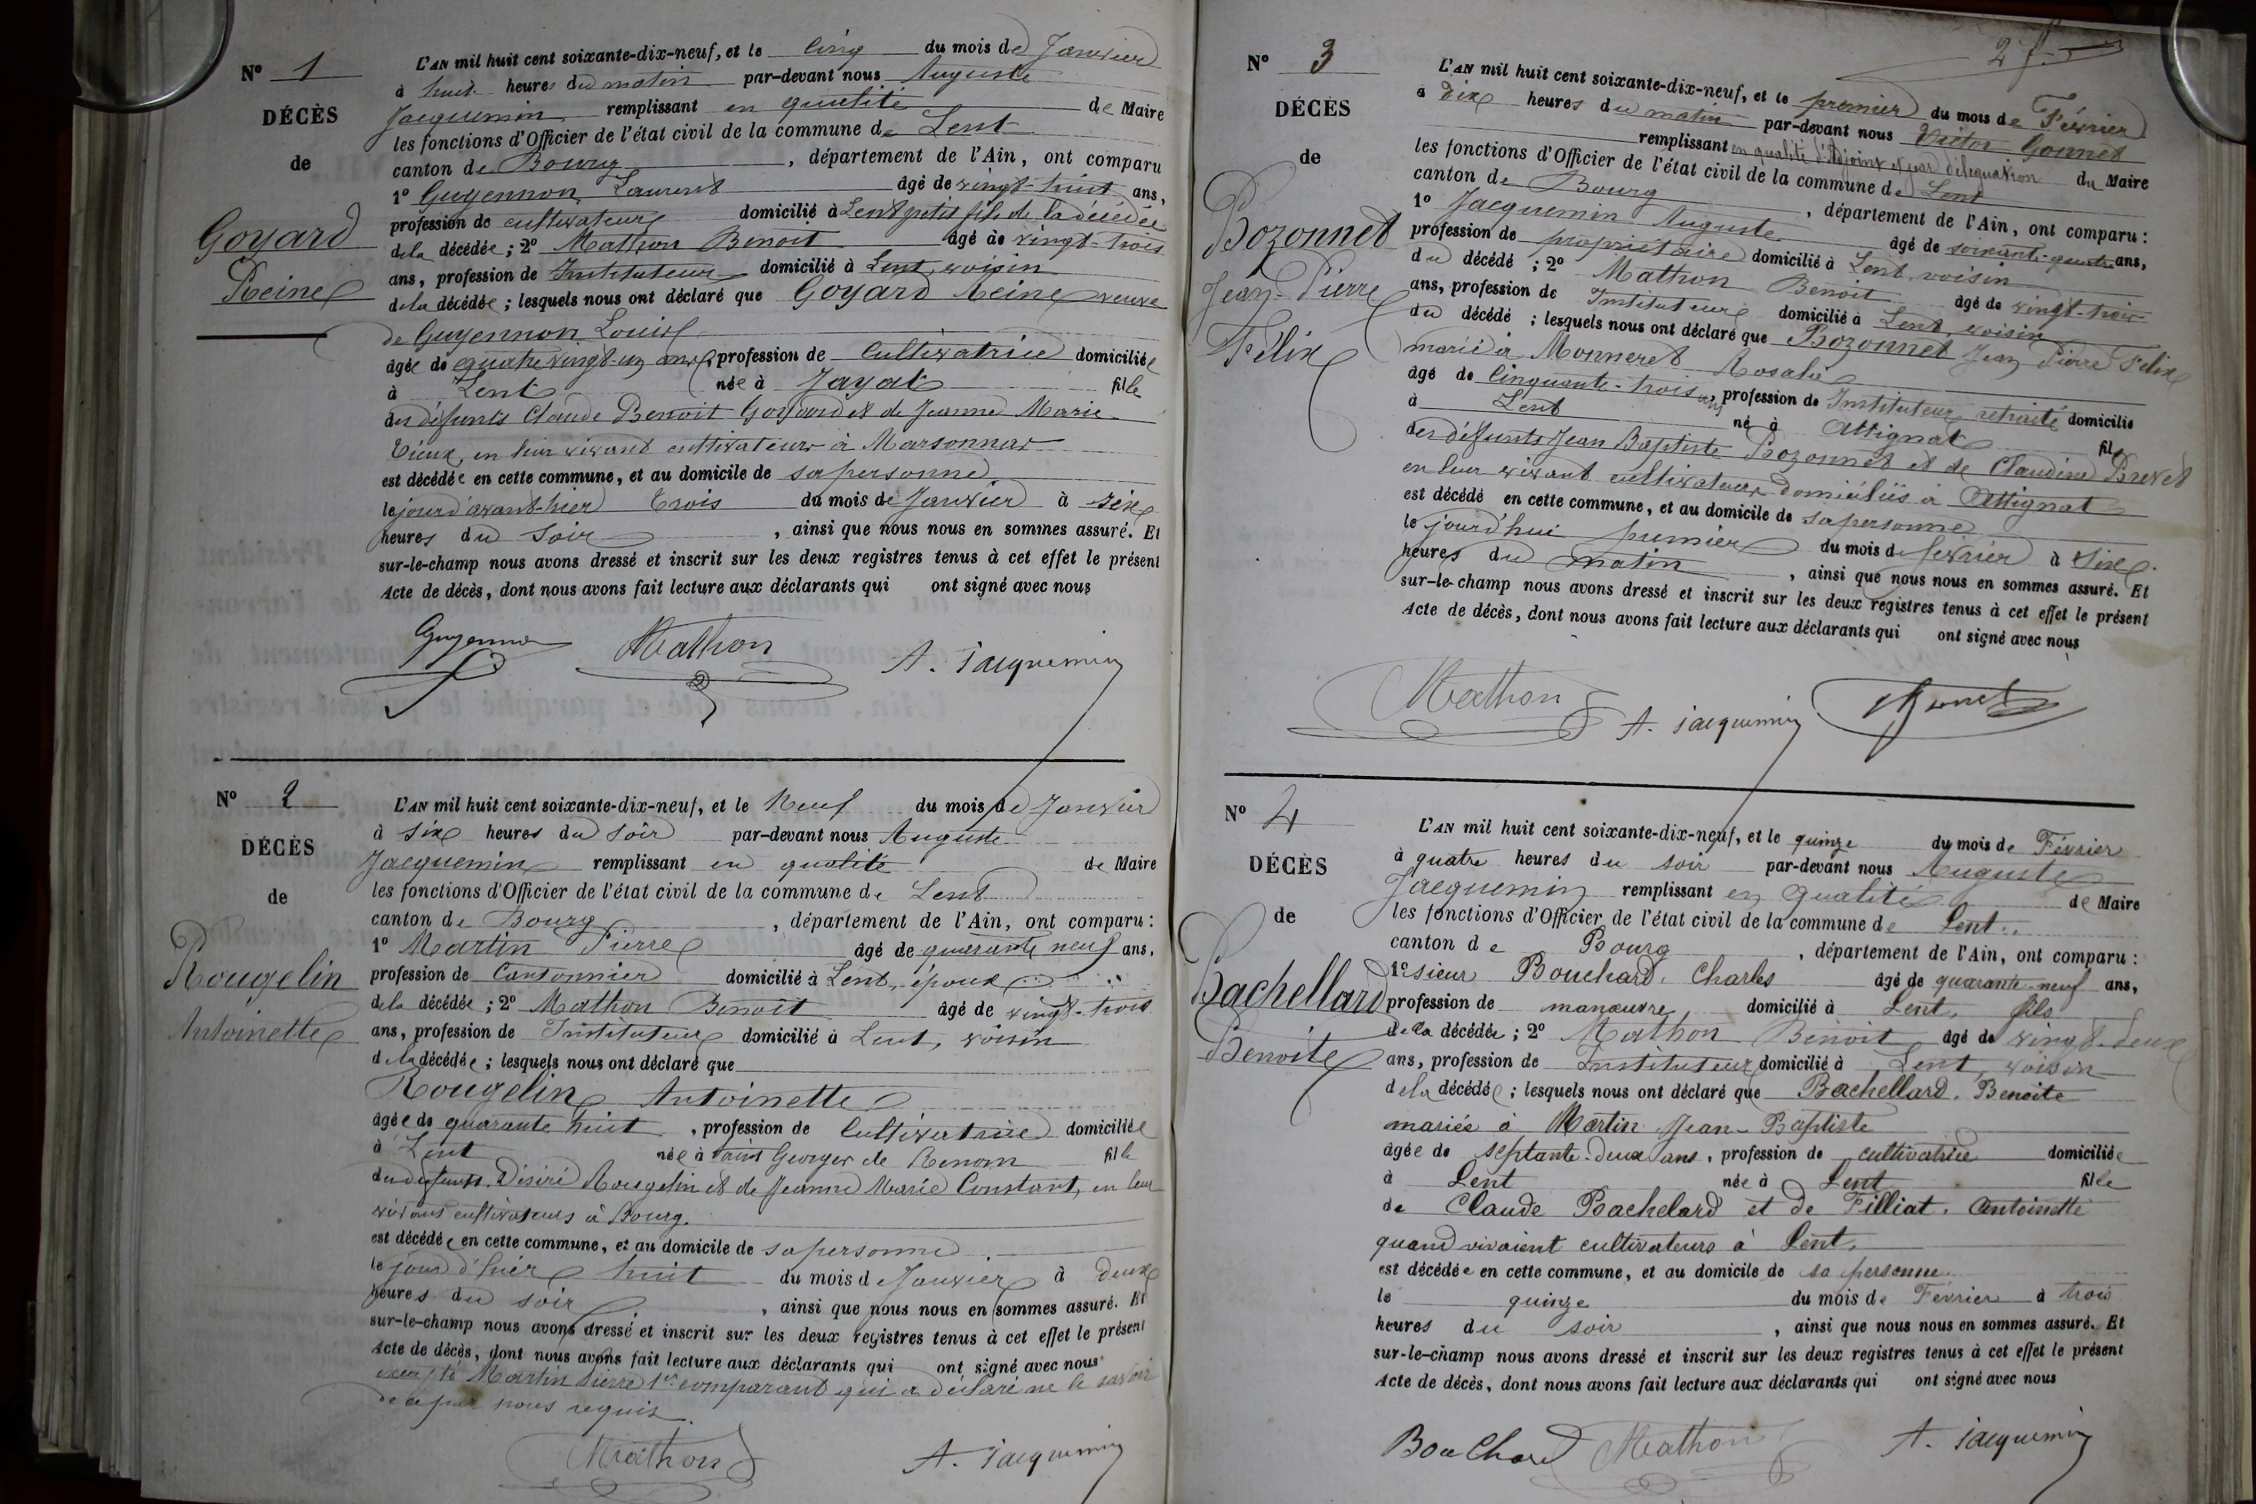 N° 1
DÉCÈS
de
Goyard
Reine
L'AN mil huit cent soixante-dix-neuf, et le cinq du mois de Janvier
à huit heures du matin par-devant nous Auguste
Jacquemin remplissant en qualité de Maire
les fonctions d'Officier de l'état civil de la commune de Lent
canton de Bourg, département de l'Ain, ont comparu
1° Guyennon Laurent âgé de vingt-huit ans,
profession de cultivateur domicilié à Lent petit fils de la décédée
de la décédée ; 2° Mathon Benoit âgé de vingt-trois
ans, profession de Instituteur domicilié à Lent, voisin
de la décédée ; lesquels nous ont déclaré que Goyard Reine veuve
de Guyennon Louis
âgée de quatre vingt-un ans, profession de Cultivatrice domiciliée
à Lent née à Jayat fille
des défunts Claude Benoit Goyard et de Jeanne Marie
en leur vivant cultivateurs à Marsonnas
est décédée en cette commune, et au domicile de sa personne
le jour d'avant-hier trois du mois de Janvier à six
heures du soir, ainsi que nous nous en sommes assuré. Et
sur-le-champ nous avons dressé et inscrit sur les deux registres tenus à cet effet le présent
Acte de décès, dont nous avons fait lecture aux déclarants qui ont signé avec nous
Guyennon Mathon A. Jacquemin
N° 2
DÉCÈS
de
Rougelin
Antoinette
L'AN mil huit cent soixante-dix-neuf, et le Neuf du mois de Janvier
à six heures du soir par-devant nous Auguste
Jacquemin remplissant en qualité de Maire
les fonctions d'Officier de l'état civil de la commune de Lent
canton de Bourg, département de l'Ain, ont comparu :
1° Martin Pierre âgé de quarante neuf ans,
profession de Cantonnier domicilié à Lent, époux
de la décédée ; 2° Mathon Benoît âgé de vingt-trois
ans, profession de Instituteur domicilié à Lent, voisin
de la décédée ; lesquels nous ont déclaré que
Rougelin Antoinette
âgée de quarante huit, profession de Cultivatrice domiciliée
à Lent née à Saint Georges de Renom fille
des défunts Désiré Rougelin et de Jeanne Marie Constant, en leur
vivant cultivateurs à Bourg.
est décédée en cette commune, et au domicile de sa personne
le jour d'hier huit du mois de Janvier à deux
heures du soir, ainsi que nous nous en sommes assuré. Et
sur-le-champ nous avons dressé et inscrit sur les deux registres tenus à cet effet le présent
Acte de décès, dont nous avons fait lecture aux déclarants qui ont signé avec nous
excepté Martin Pierre 1er comparant qui a déclaré ne le savoir
de ce par nous requis.
Mathon A. Jacquemin
27
N° 3
DÉCÈS
de
Bozonnet
Jean-Pierre
Félix
L'AN mil huit cent soixante-dix-neuf, et le premier du mois de Février
à dix heures du matin par-devant nous Victor Gonnet
remplissant en qualité d'Adjoint et par délégation du Maire
les fonctions d'Officier de l'état civil de la commune de Lent
canton de Bourg, département de l'Ain, ont comparu :
1° Jacquemin Auguste âgé de soixante-quatre ans,
profession de propriétaire domicilié à Lent voisin
du décédé ; 2° Mathon Benoit âgé de vingt-trois
ans, profession de Instituteur domicilié à Lent, voisin
du décédé ; lesquels nous ont déclaré que Bozonnet Jean Pierre Felix
marié à Monneret Rosalie
âgé de cinquante-trois ans, profession de Instituteur retraité domicilié
à Lent né à Attignat fils
des défunts Jean Baptiste Bozonnet et de Claudine Brevet
en leur vivant cultivateurs domiciliés à Attignat
est décédé en cette commune, et au domicile de sa personne
le jourd'hui premier du mois de février à six
heures du matin, ainsi que nous nous en sommes assuré. Et
sur-le-champ nous avons dressé et inscrit sur les deux registres tenus à cet effet le présent
Acte de décès, dont nous avons fait lecture aux déclarants qui ont signé avec nous
Mathon A. Jacquemin Gonnet
N° 4
DÉCÈS
de
Bachellard
Benoite
L'AN mil huit cent soixante-dix-neuf, et le quinze du mois de Février
à quatre heures du soir par-devant nous Auguste
Jacquemin remplissant en qualité de Maire
les fonctions d'Officier de l'état civil de la commune de Lent
canton de Bourg, département de l'Ain, ont comparu :
1° sieur Bouchard, Charles âgé de quarante-neuf ans,
profession de manœuvre domicilié à Lent, fils
de la décédée ; 2° Mathon Benoit âgé de vingt-deux
ans, profession de Instituteur domicilié à Lent, voisin
de la décédée ; lesquels nous ont déclaré que Bachellard, Benoite
mariée à Martin Jean-Baptiste
âgée de septante-deux ans, profession de cultivatrice domiciliée
à Lent née à Lent fille
de Claude Bachelard et de Filliat, Antoinette
quand vivaient cultivateurs à Lent,
est décédée en cette commune, et au domicile de sa personne
le quinze du mois de Février à trois
heures du soir, ainsi que nous nous en sommes assuré. Et
sur-le-champ nous avons dressé et inscrit sur les deux registres tenus à cet effet le présent
Acte de décès, dont nous avons fait lecture aux déclarants qui ont signé avec nous
Bouchard Mathon A. Jacquemin